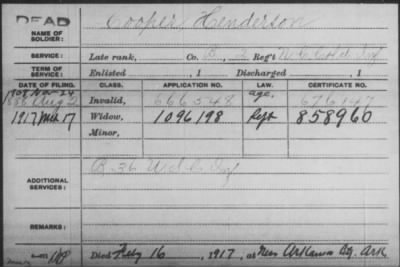 DEAD
NAME OF SOLDIER: Cooper Henderson
SERVICE: Late rank, Co. B, 2 Reg't U.S. Col'd Inf
TERM OF SERVICE: Enlisted , 1 Discharged , 1
DATE OF FILING. CLASS. APPLICATION NO. LAW. CERTIFICATE NO.
1908 Nov 24 age,
1888 Aug 2 Invalid, 666548 676147
1917 17 Widow, 1096198 858960
Minor,
ADDITIONAL SERVICES: B-36
REMARKS:
Died 16, 1917, at Near Arkansas City, Ark